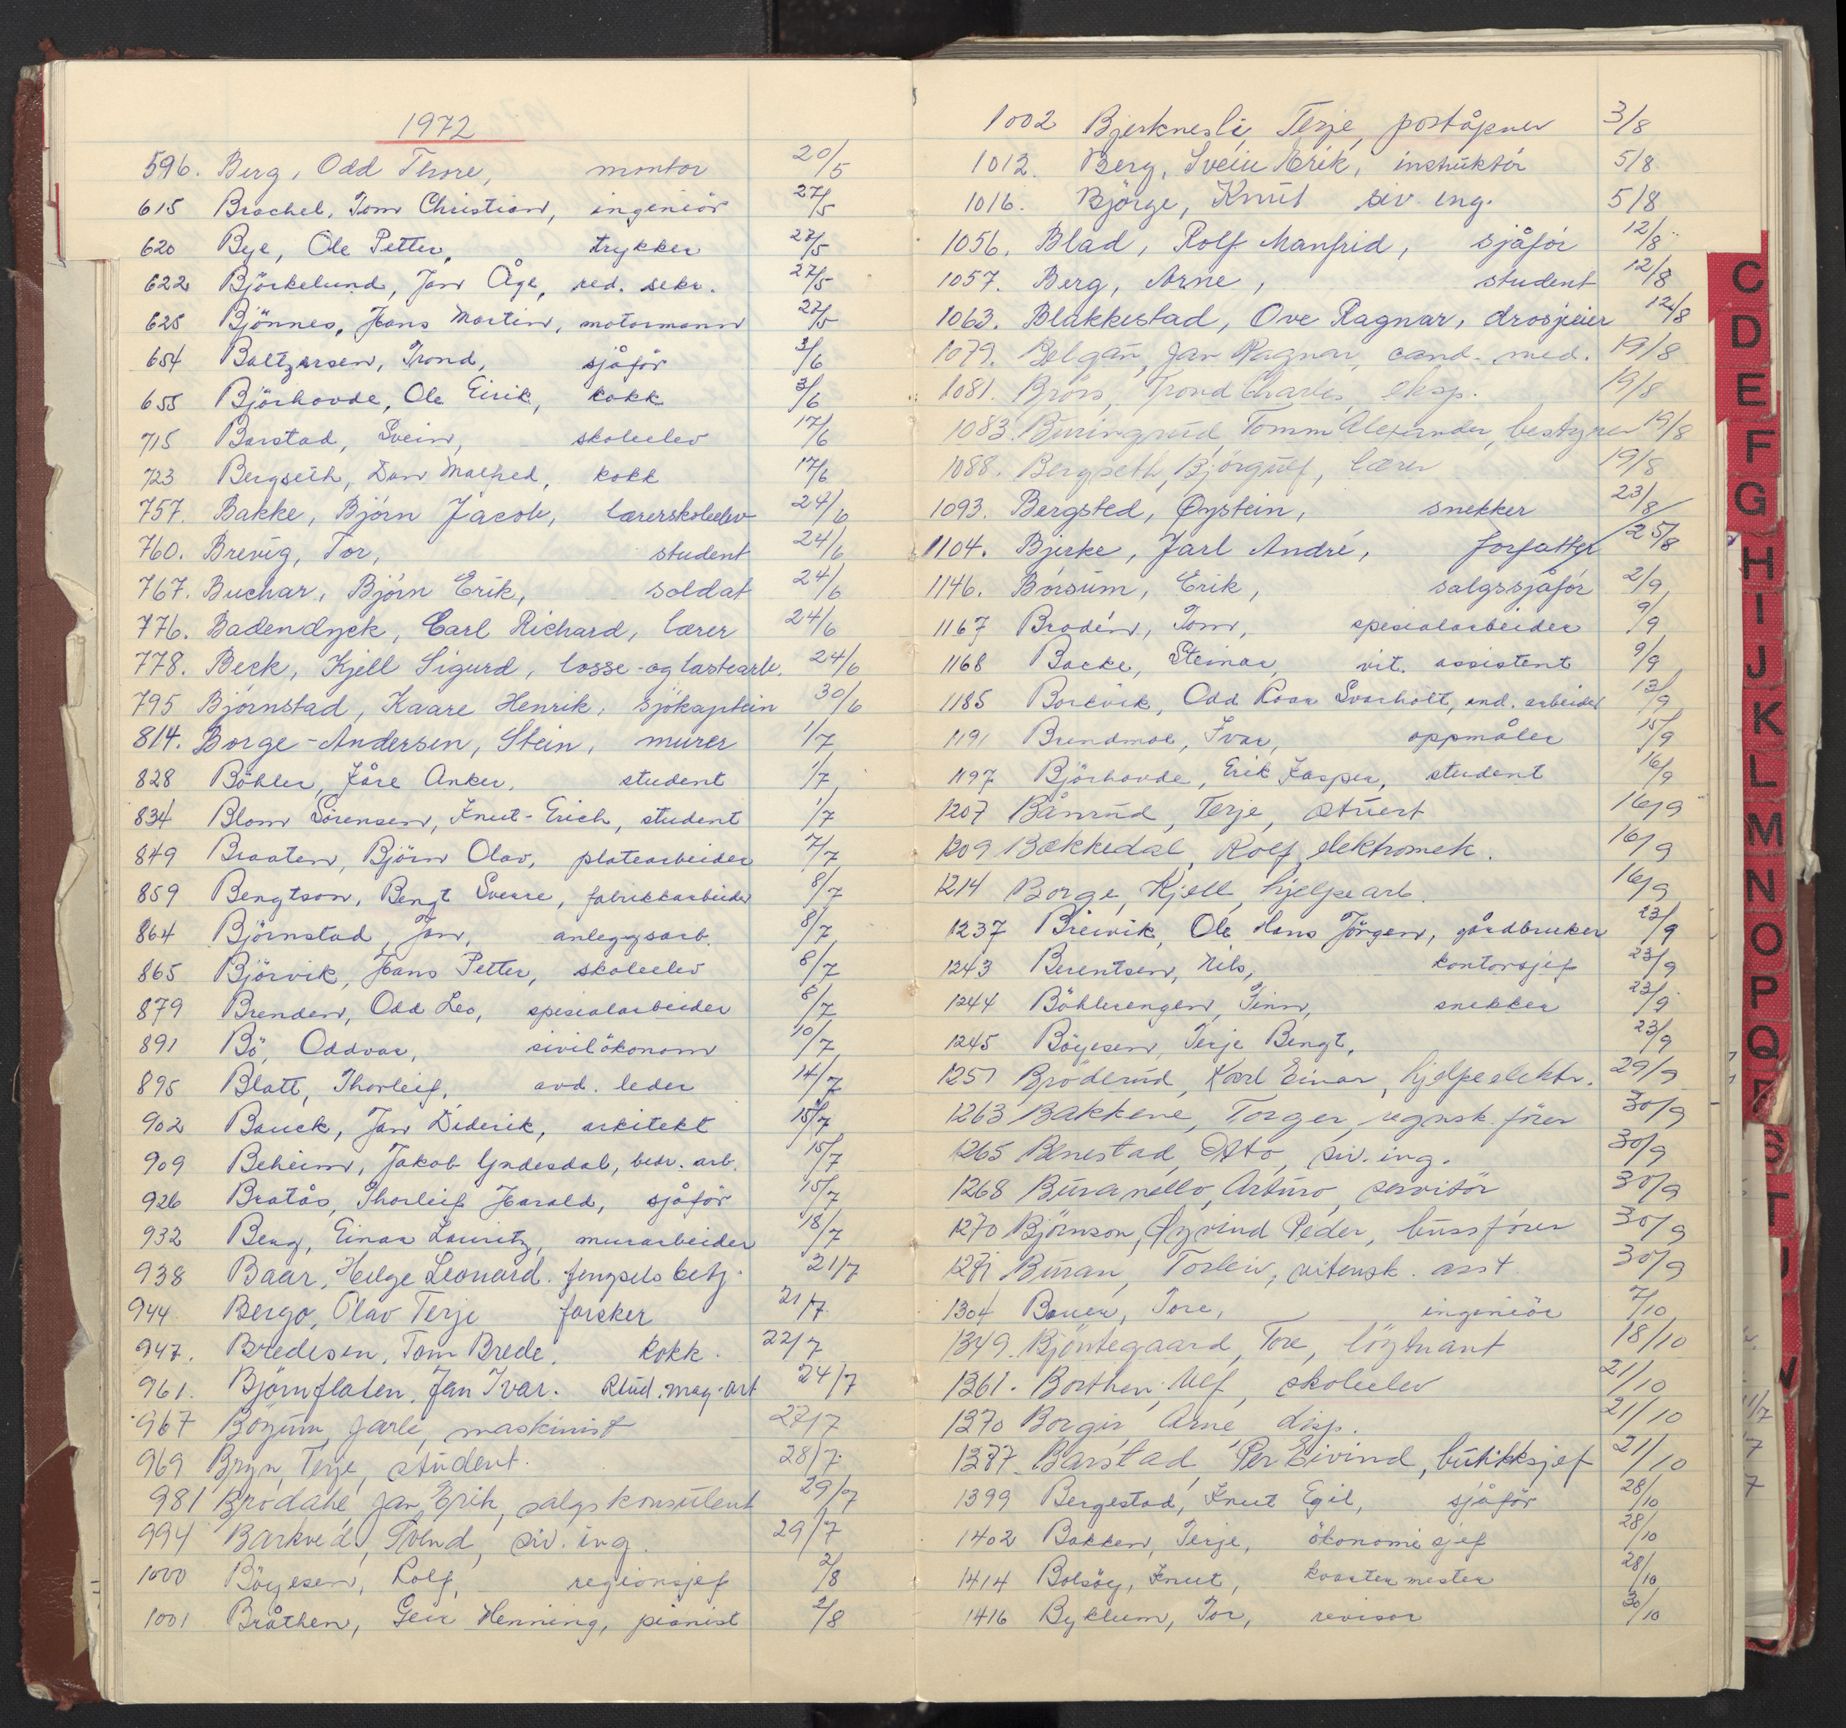 1972
596. Berg, Odd Thore, montør 20/5
615 Brachel, Tom Christian, ingeniör 27/5
620 Bye, Ole Petter, trykker 27/5
622 Björkelund, Jan Åge, red. sekr. 27/5
625 Bjönnes, Hans Martin, motormann 27/5
654 Baltzersen, Trond, sjåför 3/6
655 Björhovde, Ole Eirik, kokk 3/6
715 Barstad, Svein, skoleelev 17/6
723 Bergseth, Dan Malfred, kokk 17/6
757. Bakke, Bjørn Jacob, lærerskoleelev 24/6
760. Brevig, Tor, student 24/6
767. Buchar, Bjørn Erik, soldat 24/6
776. Badendyck, Carl Richard, lærer 24/6
778. Beck, Kjell Sigurd, losse-og lastearb. 24/6
795 Bjørnstad, Kaare Henrik, sjökaptein 30/6
814. Borge-Andersen, Stein, murer 1/7
828 Böhler, Kåre Anker, student 1/7
834 Blom Sörensen, Knut-Erich, student 1/7
849 Braaten, Björn Olav, platearbeider 7/7
859 Bengtson, Bengt Sverre, fabrikkarbeider 8/7
864 Björnstad, Jan, anleggsarb. 8/7
865 Björvik, Hans Petter, skoleelev 8/7
879 Brenden, Odd Leo, spesialarbeider 8/7
891 Bö, Oddvar, siviløkonom 10/7
895 Blatt, Thorleif, avd. leder 14/7
902 Bauck, Jan Diderik, arkitekt 15/7
909 Beheim, Jakob Yndesdal, bedr. arb. 15/7
926 Bratås, Thorleif Harald, sjåför 15/7
932 Berg, Einar Lauritz, murarbeider 18/7
938 Baar, Helge Leonard. fengsels betj. 21/7
944 Bergo, Olav Terje forsker 21/7
947. Bredesen, Tom Brede, kokk. 22/7
961. Björnflaten, Jan Ivar. stud. mag. art 24/7
967 Böyum, Jarle, maskinist 27/7
969 Bryn, Terje, student. 28/7
981 Brodahl, Jan Erik, salgskonsulent 29/7
994 Barkved, Tolnd, siv. ing. 29/7
1000 Böyesen, Rolf, regionsjef 2/8
1001 Bråthen, Geir Henning, pianist 2/8
1002 Bjerknesli, Terje, poståpner 3/8
1012. Berg, Svein Erik, instruktør 5/8
1016. Björge, Knut siv. ing. 5/8
1056. Blad, Rolf Manfrid, sjåfør 12/8
1057. Berg, Arne, student 12/8
1063. Blakkestad, Ove Ragnar, drosjeeier 12/8
1079. Belgau, Jan Ragnar, cand. med. 19/8
1081. Brörs, Trond Charles, eksp. 19/8
1083 Buringrud, Tomm Alexander, bestyrer 19/8
1088. Bergseth, Bjørgulf, lærer 19/8
1093. Bergsted, Øystein, snekker 23/8
1104. Bjerke, Jarl André, forfatter 25/8
1146. Børsum, Erik, salgssjåfør 2/9
1167 Brodén, Tom, spesialarbeider 9/9
1168 Backe, Steinar, vit. assistent 9/9
1185 Borkvik, Odd Roar Svarholt, ind. arbeider 13/9
1191 Brendmoe, Ivar, oppmåler 15/9
1197 Björhovde, Erik Kasper, student 16/9
1207 Bånrud, Terje, stuert 16/9
1209 Bækkedal, Rolf, elektromek. 16/9
1214 Borge, Kjell, hjelpearb. 16/9
1237 Breivik, Ole Hans Jörgen, gårdbruker 23/9
1243 Berentsen, Nils, kontorsjef 23/9
1244 Böhlerengen, Finn, snekker 23/9
1245 Böyesen, Terje Bengt, 23/9
1251 Bröderud, Karl Einar, hjelpeelektr. 29/9
1263 Bakkene, Torger, regnsk.förer 30/9
1265 Benestad, Otto, siv. ing. 30/9
1268 Buranello, Arturo, servitör 30/9
1270 Björnson, Øyvind Peder, bussförer 30/9
1271 Buran, Torlein, vitensk. asst. 30/9
1304 Bauer, Tore, ingeniör 7/10
1349. Bjöntegaard, Tore, löytnant 18/10
1361. Borthen, Ulf, skoleelev 21/10
1370 Borgir, Arne, disp. 21/10
1377. Barstad, Per Eivind, butikksjef 21/10
1399 Bergestad, Knut Egil, sjåför 28/10
1402 Bakken, Terje, ökonomisjef 28/10
1414 Bolsöy, Knut, kvartermester 28/10
1416 Byklum, Tor, revisor 30/10
C
D
E
F
G
H
I
J
K
L
M
N
O
P
Q
S
T